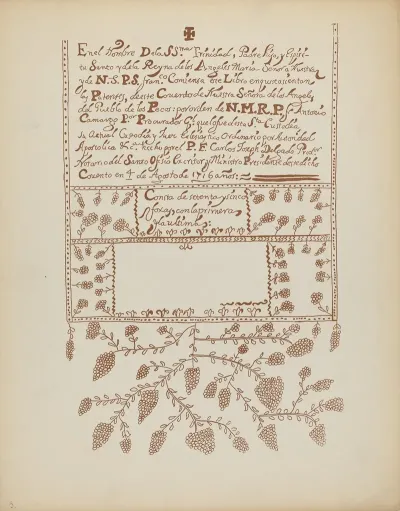 En el Nombre De la SSma Trinidad, Padre, Hijo, y Espiri-
tu Santo y de la Reyna de los Angeles Maria Señora Nuestra
y de N. S. P. S. Franco. Comiensa este Libro en que se asientan
las Patentes, de este Convento de Nuestra Señora de los Angeles
del Pueblo de los Pecos: por orden de N. M. R. P. Fr Antonio
Camargo Por Procurador Gl que fue de esta Sta Custodia
Autoridad
Apostolica &c. hecho por el P. F. Carlos Joseph Delgado Predor
Notario del Santo Ofisio Escritor y Ministro Presidente de este dicho
Convento en 4 de Agosto de 1716 años:
Consta de setenta y sinco
foxas, con la primera
y la ultima: